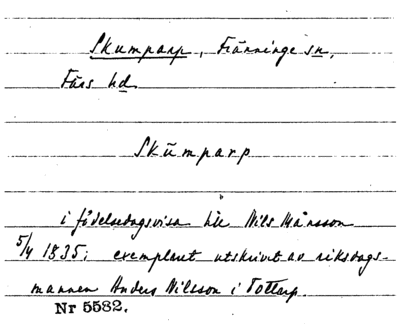 Skumparp, Tranninge sn,
Färs hd
Skŭmparp
i födelsedagsvisa till Nils Månsson
5/4 1835; exemplaret utskrivet av riksdags-
mannen Anders Nilsson i Tottarp.
Nr 5582.